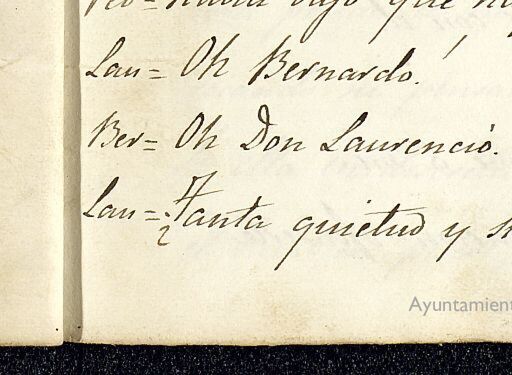 Lau= Oh Bernardo!
Ber= Oh Don Laurencio.
Lau= ¿Tanta quietud y
Ayuntamient